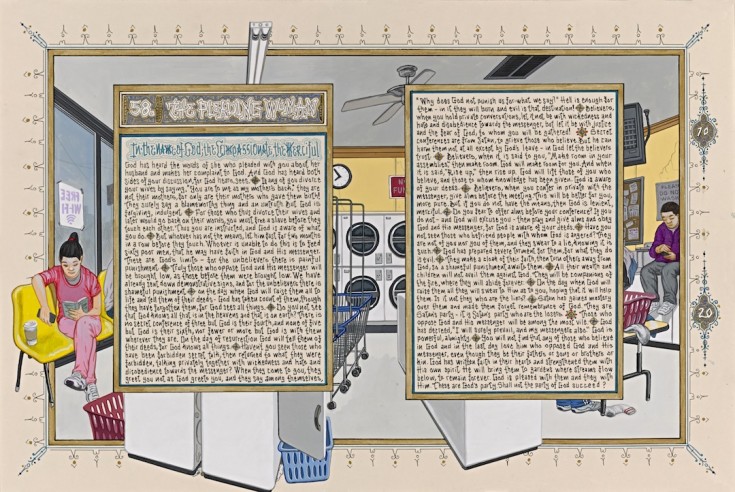 58. THE PLEADING WOMAN
In the Name of God, the Compassionate, the Merciful
God has heard the words of she who pleaded with you about her
husband and makes her complaint to God. And God has heard both
sides of your discussion, for God hears, sees. If any of you divorce
your wives by saying, "You are to me as my mother's back," they are
not their mothers, for only are their mothers who gave them birth!
They surely say a blameworthy thing and an untruth. But God is
forgiving, indulgent. For those who thus divorce their wives and
later would go back on their words, you must free a slave before they
touch each other. Thus you are instructed, and God is aware of what
you do. But whoever has not the means, let him fast for two months
in a row before they touch. Whoever is unable to do this is to feed
sixty poor men, that he may have faith in God and His messenger.
These are God's limits - for the unbelievers there is painful
punishment. Truly those who oppose God and His messenger will
be brought low, as those before them were brought low. We have
already sent down demonstrative signs, and for the unbelievers there is
shameful punishment, on the day when God will raise them all to
life and tell them of their deeds - God has taken count of them, though
they have forgotten them, for God sees all things. Do you not see
that God knows all that is in the heavens and that is on earth? There is
no secret conference of three but God is their fourth, and none of five
but God is their sixth, nor fewer or more but God is with them
wherever they are. On the day of resurrection God will tell them of
their deeds, for God knows all things. Haven't you seen those who
have been forbidden secret talk, then returned to what they were
forbidden, talking privately together with wickedness and hate and
disobedience towards the messenger? When they come to you, they
greet you not as God greets you, and they say among themselves,
"Why does God not punish us for what we say?" Hell is enough for
them - in it they will burn and evil is that destination! Believers,
when you hold private conversations, let it not be with wickedness and
hate and disobedience towards the messenger, but let it be with justice
and the fear of God, to whom you will be gathered! Secret
conferences are from Satan, to grieve those who believe. But he can
harm them not at all except by God's leave - in God let the believers
trust. Believers, when it is said to you, "Make room in your
assemblies" then make room. God will make room for you. And when
it is said, "Rise up," then rise up. God will lift those of you who
believe, and those to whom knowledge has been given. God is aware
of your deeds. Believers, when you confer in private with the
messenger, give alms before the meeting. This will be better for you,
more pure. But if you do not have the means, then God is lenient,
merciful. Do you fear to offer alms before your conference? If you
do not - and God will excuse you - then pray and give alms and obey
God and His messenger, for God is aware of your deeds. Have you
not seen those who befriend people with whom God is angered? They
are not of you nor of them, and they swear to a lie, knowing it is
such. God has prepared severe torment for them, for what they do
is evil. They make a cloak of their faith, then turn others away from
God, so a shameful punishment awaits them. All their wealth and
children will not avail them against God. They will be companions of
the fire, where they will abide forever. On the day when God will
raise them all they will swear to Him as to you, hoping that it will help
them. Is it not they who are the liars? Satan has power mastery
over them and made them forget remembrance of God. They are
Satan's party - it is Satan's party who are the losers. Those who
oppose God and His messenger will be among the most vile. God
has decreed, "I will surely prevail, and my messengers also." God is
powerful, almighty. You will not find that any of those who believe
in God and in the last day love him who opposed God and His
messenger, even though they be their fathers or sons or brothers or
kin. God has written faith in their hearts and strengthened them with
His own spirit. He will bring them to gardens where streams flow
below, to remain forever. God is pleased with them and they with
Him. These are God's party. Shall not the party of God succeed?
FREE
WI-FI
PLEASE
DO NOT
10
20